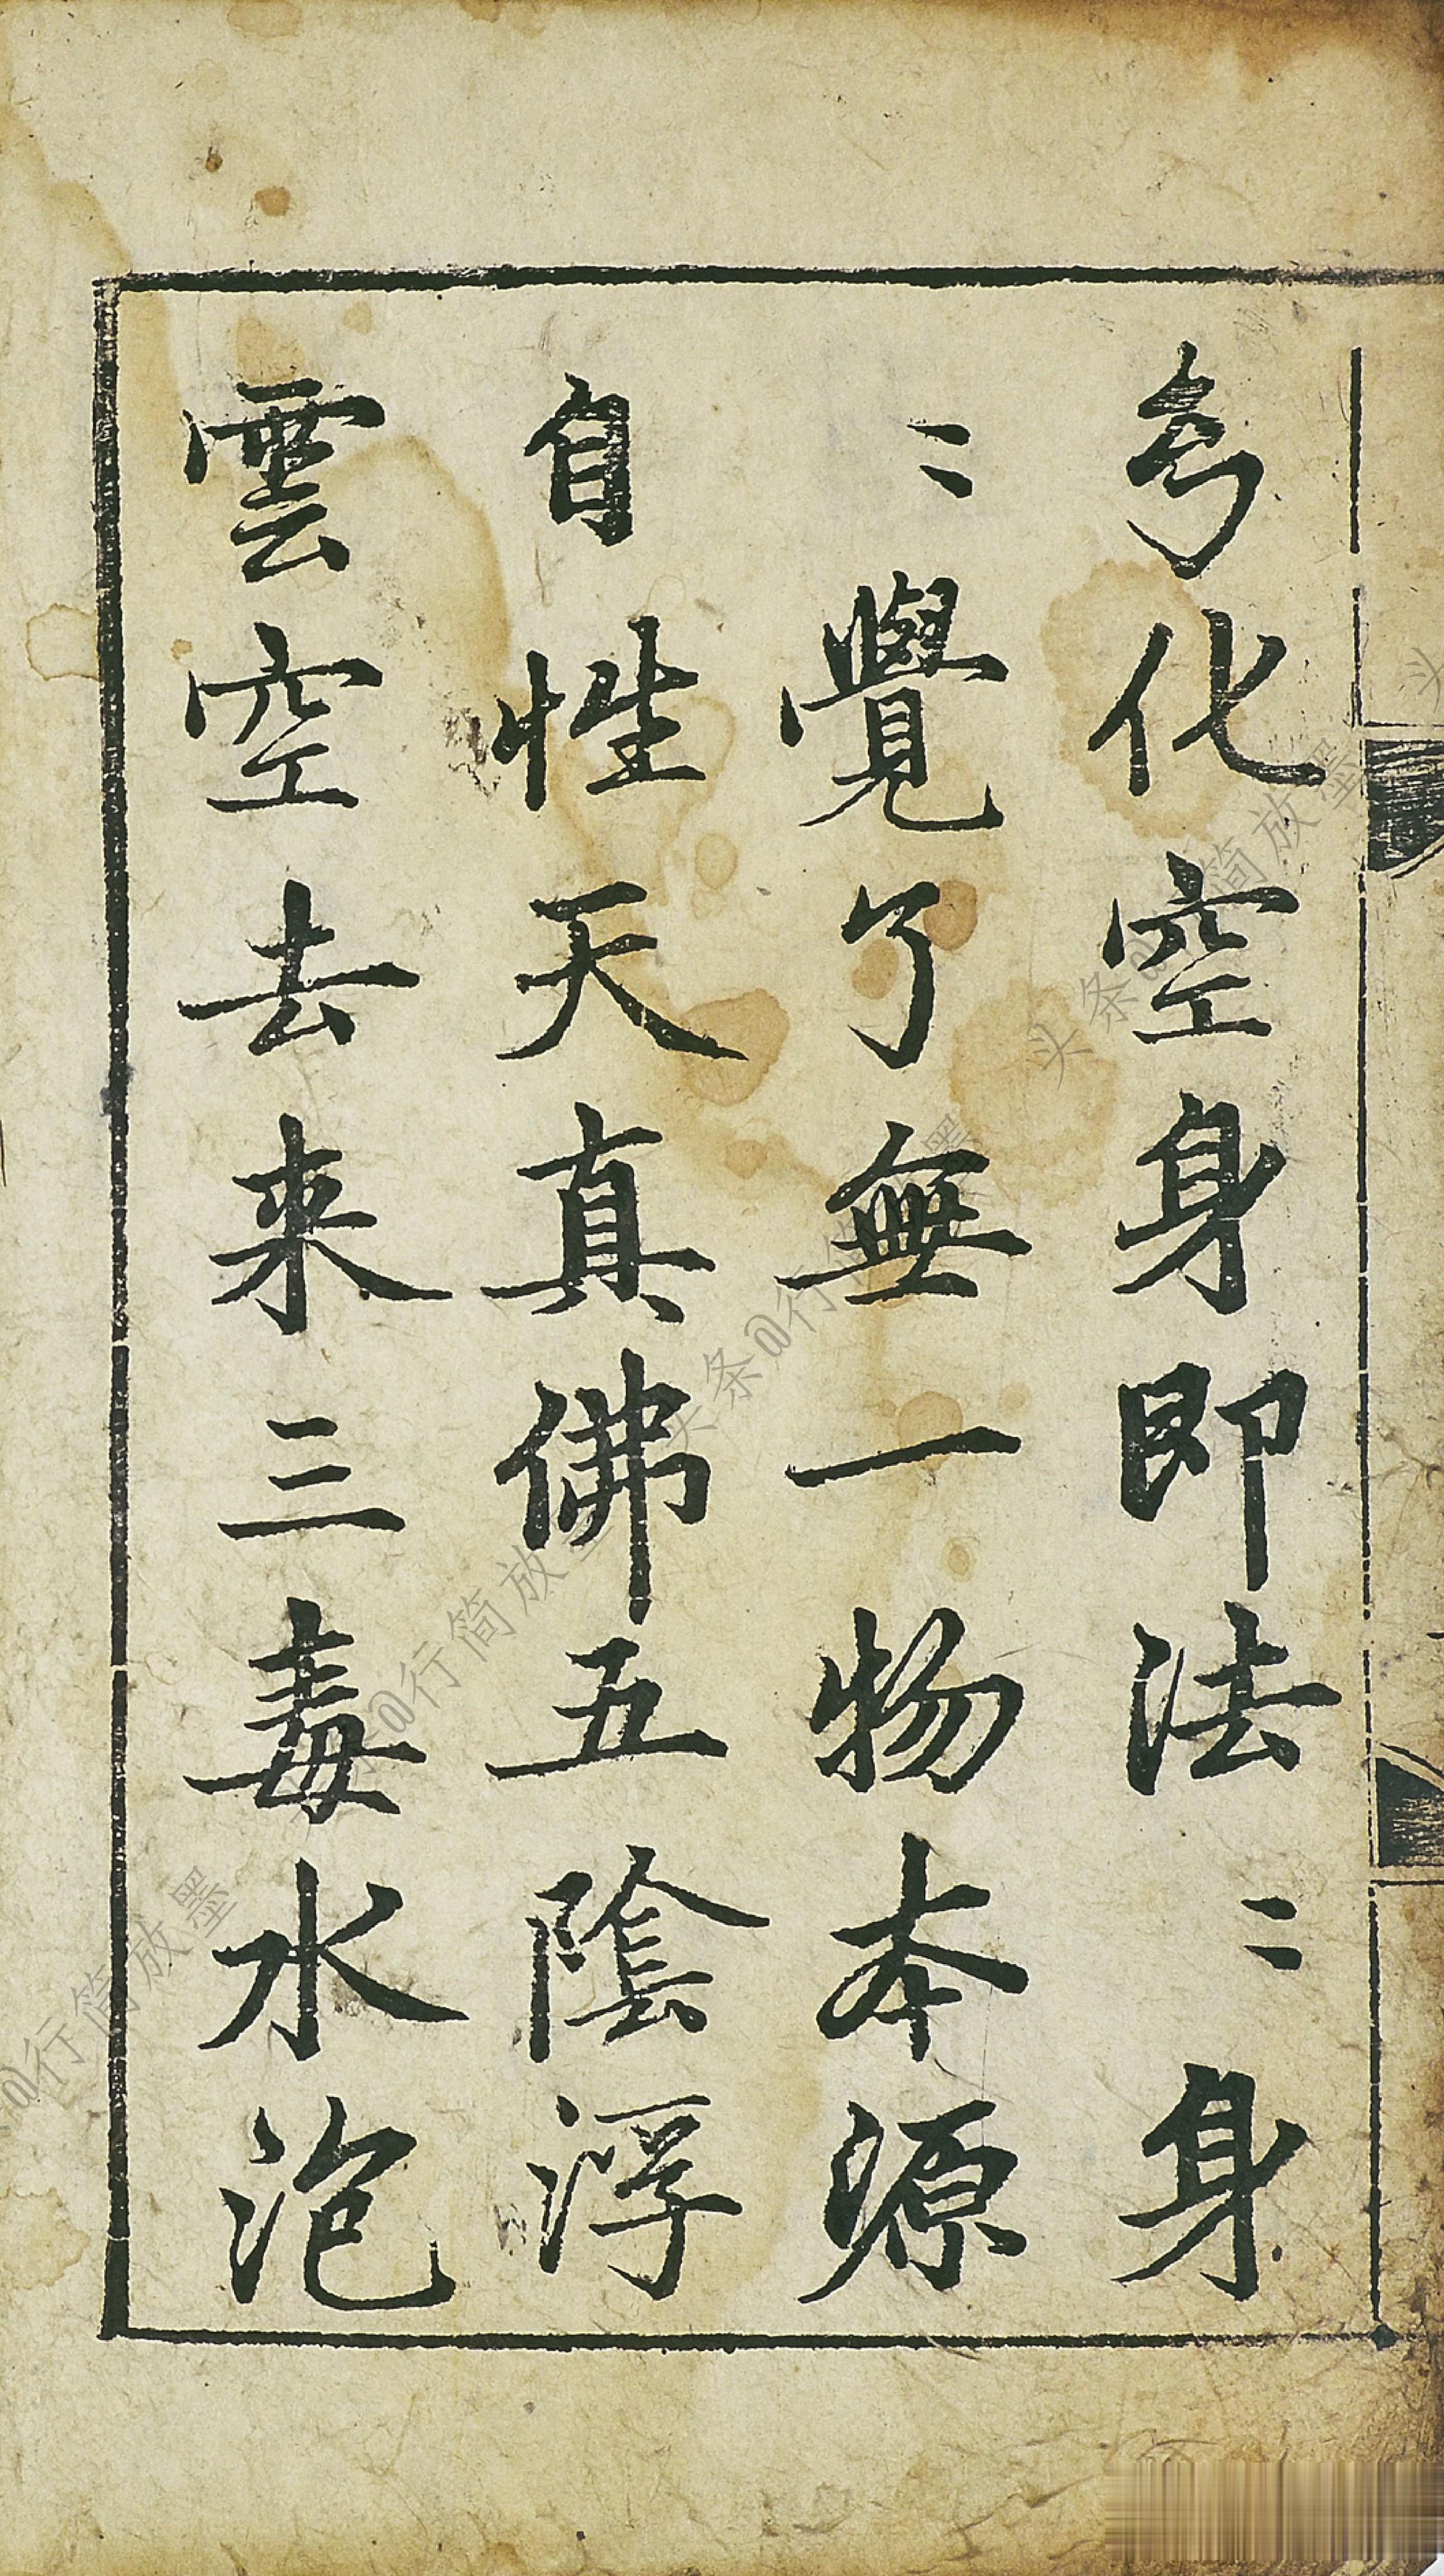 幻化空身即法〻身
〻覺了無一物本源
自性天真佛五陰浮
雲空去来三毒水泡
头条@行简放墨
头条@行简放墨
头条@行简放墨
@行简放墨